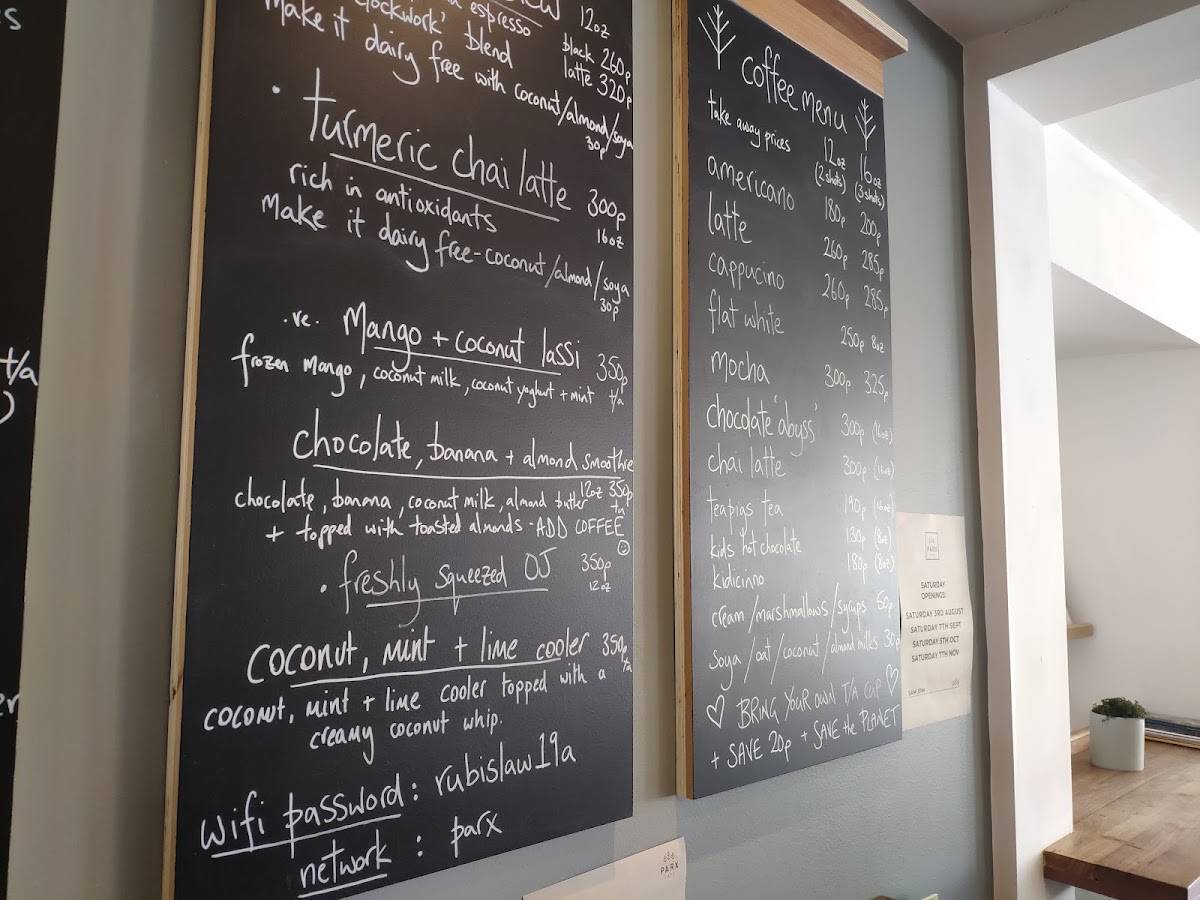 s
t/a
)
er
espresso 12oz
'clockwork' blend black 260p
latte 320p
make it dairy free with coconut/almond/soya
30p
· turmeric chai latte 300p
rich in antioxidants 16oz
Make it dairy free-coconut/almond/soya
30p
.ve. Mango + coconut lassi 350p
frozen mango, coconut milk, coconut yoghurt + mint t/a
chocolate, banana + almond smoothie
12oz 350p
chocolate, banana, coconut milk, almond butter t/a
+ topped with toasted almonds - ADD COFFEE
· freshly squeezed OJ 350p
12oz
coconut, mint + lime cooler 350p
t/a
coconut, mint + lime cooler topped with a
creamy coconut whip.
wifi password: rubislaw19a
network : parx
coffee menu
take away prices 12oz 16oz
(2 shots) (3 shots)
americano 180p 200p
latte 260p 285p
cappucino 260p 285p
flat white 250p 8oz
mocha 300p 325p
chocolate 'abyss' 300p (16oz)
chai latte 300p (16oz)
teapigs tea 190p (16oz)
kids hot chocolate 130p (8oz)
kidicinno 180p (8oz)
cream/marshmallows/syrups 50p
soya/oat/coconut/almond milks 30p
BRING YOUR OWN T/A CUP
+ SAVE 20p + SAVE the PLANET
PARX
SATURDAY
OPENINGS:
SATURDAY 3RD AUGUST
SATURDAY 7TH SEPT
SATURDAY 5TH OCT
SATURDAY 7TH NOV
PARX